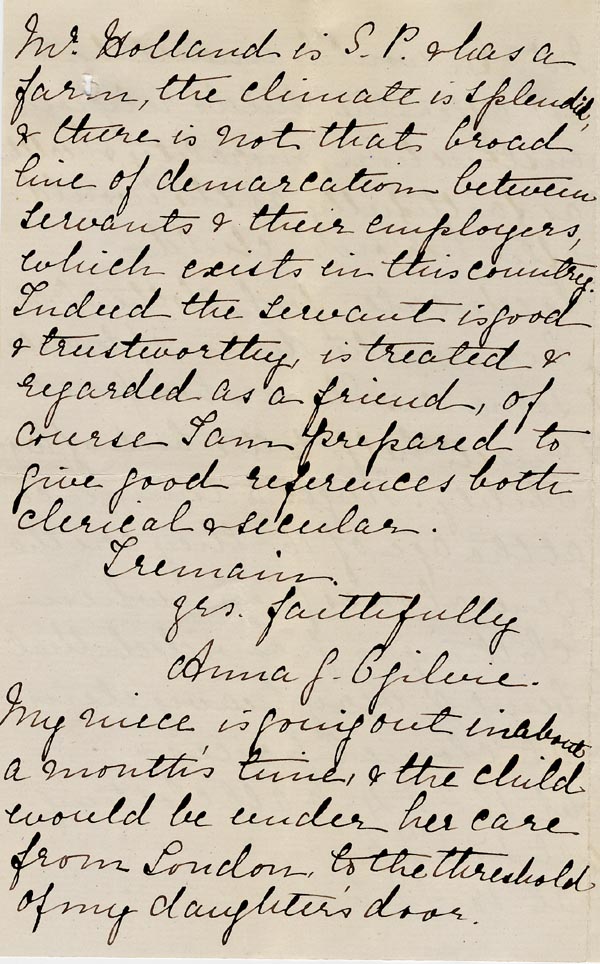 Mr. Holland is S. P. & has a
farm, the climate is splendid,
& there is not that broad
line of demarcation between
servants & their employers,
which exists in this country.
Indeed the servant is good
& trustworthy, is treated &
regarded as a friend, of
course I am prepared to
give good references both
clerical & secular.
I remain.
yrs. faithfully
Anna J. Ogilvie.
My niece is going out in about
a month's time, & the child
would be under her care
from London, to the threshold
of my daughter's door.